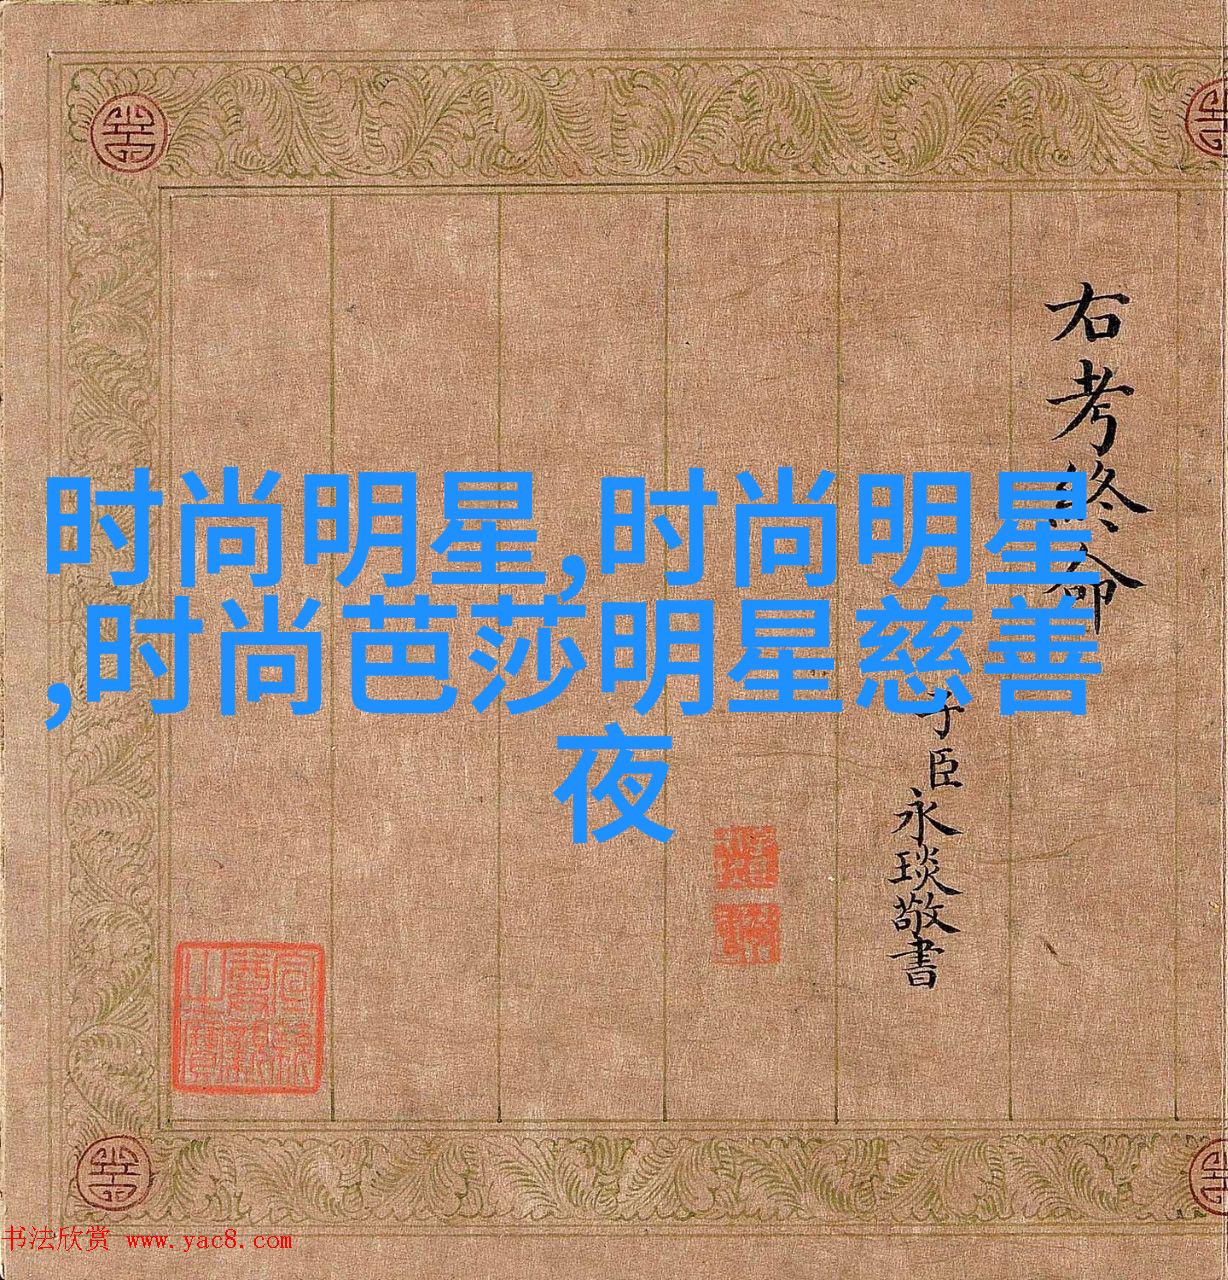 时尚明星,时尚明星
,时尚芭莎明星慈善
夜
右考终命
子臣永琰敬書
书法欣赏 www.yac8.com